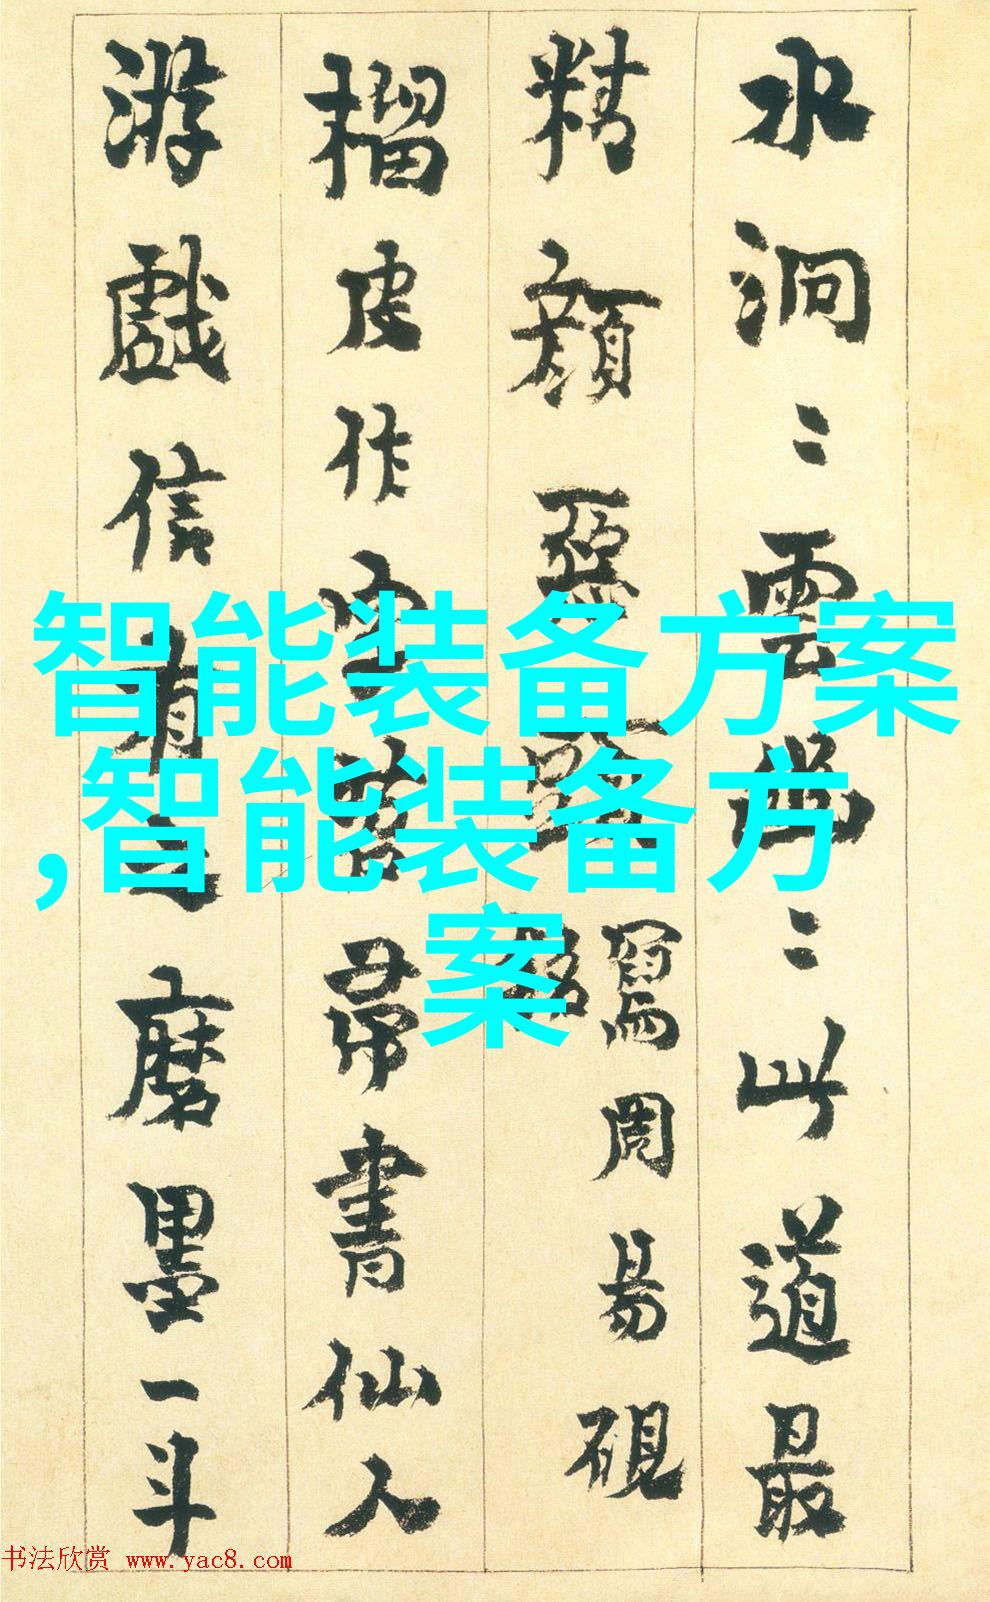 水洞〻雲幽〻此道最
精
寫周易硯
榴皮作字帚書仙人
游戲信有之磨墨一斗
智能装备方案
,智能装备方
案
书法欣赏 www.yac8.com